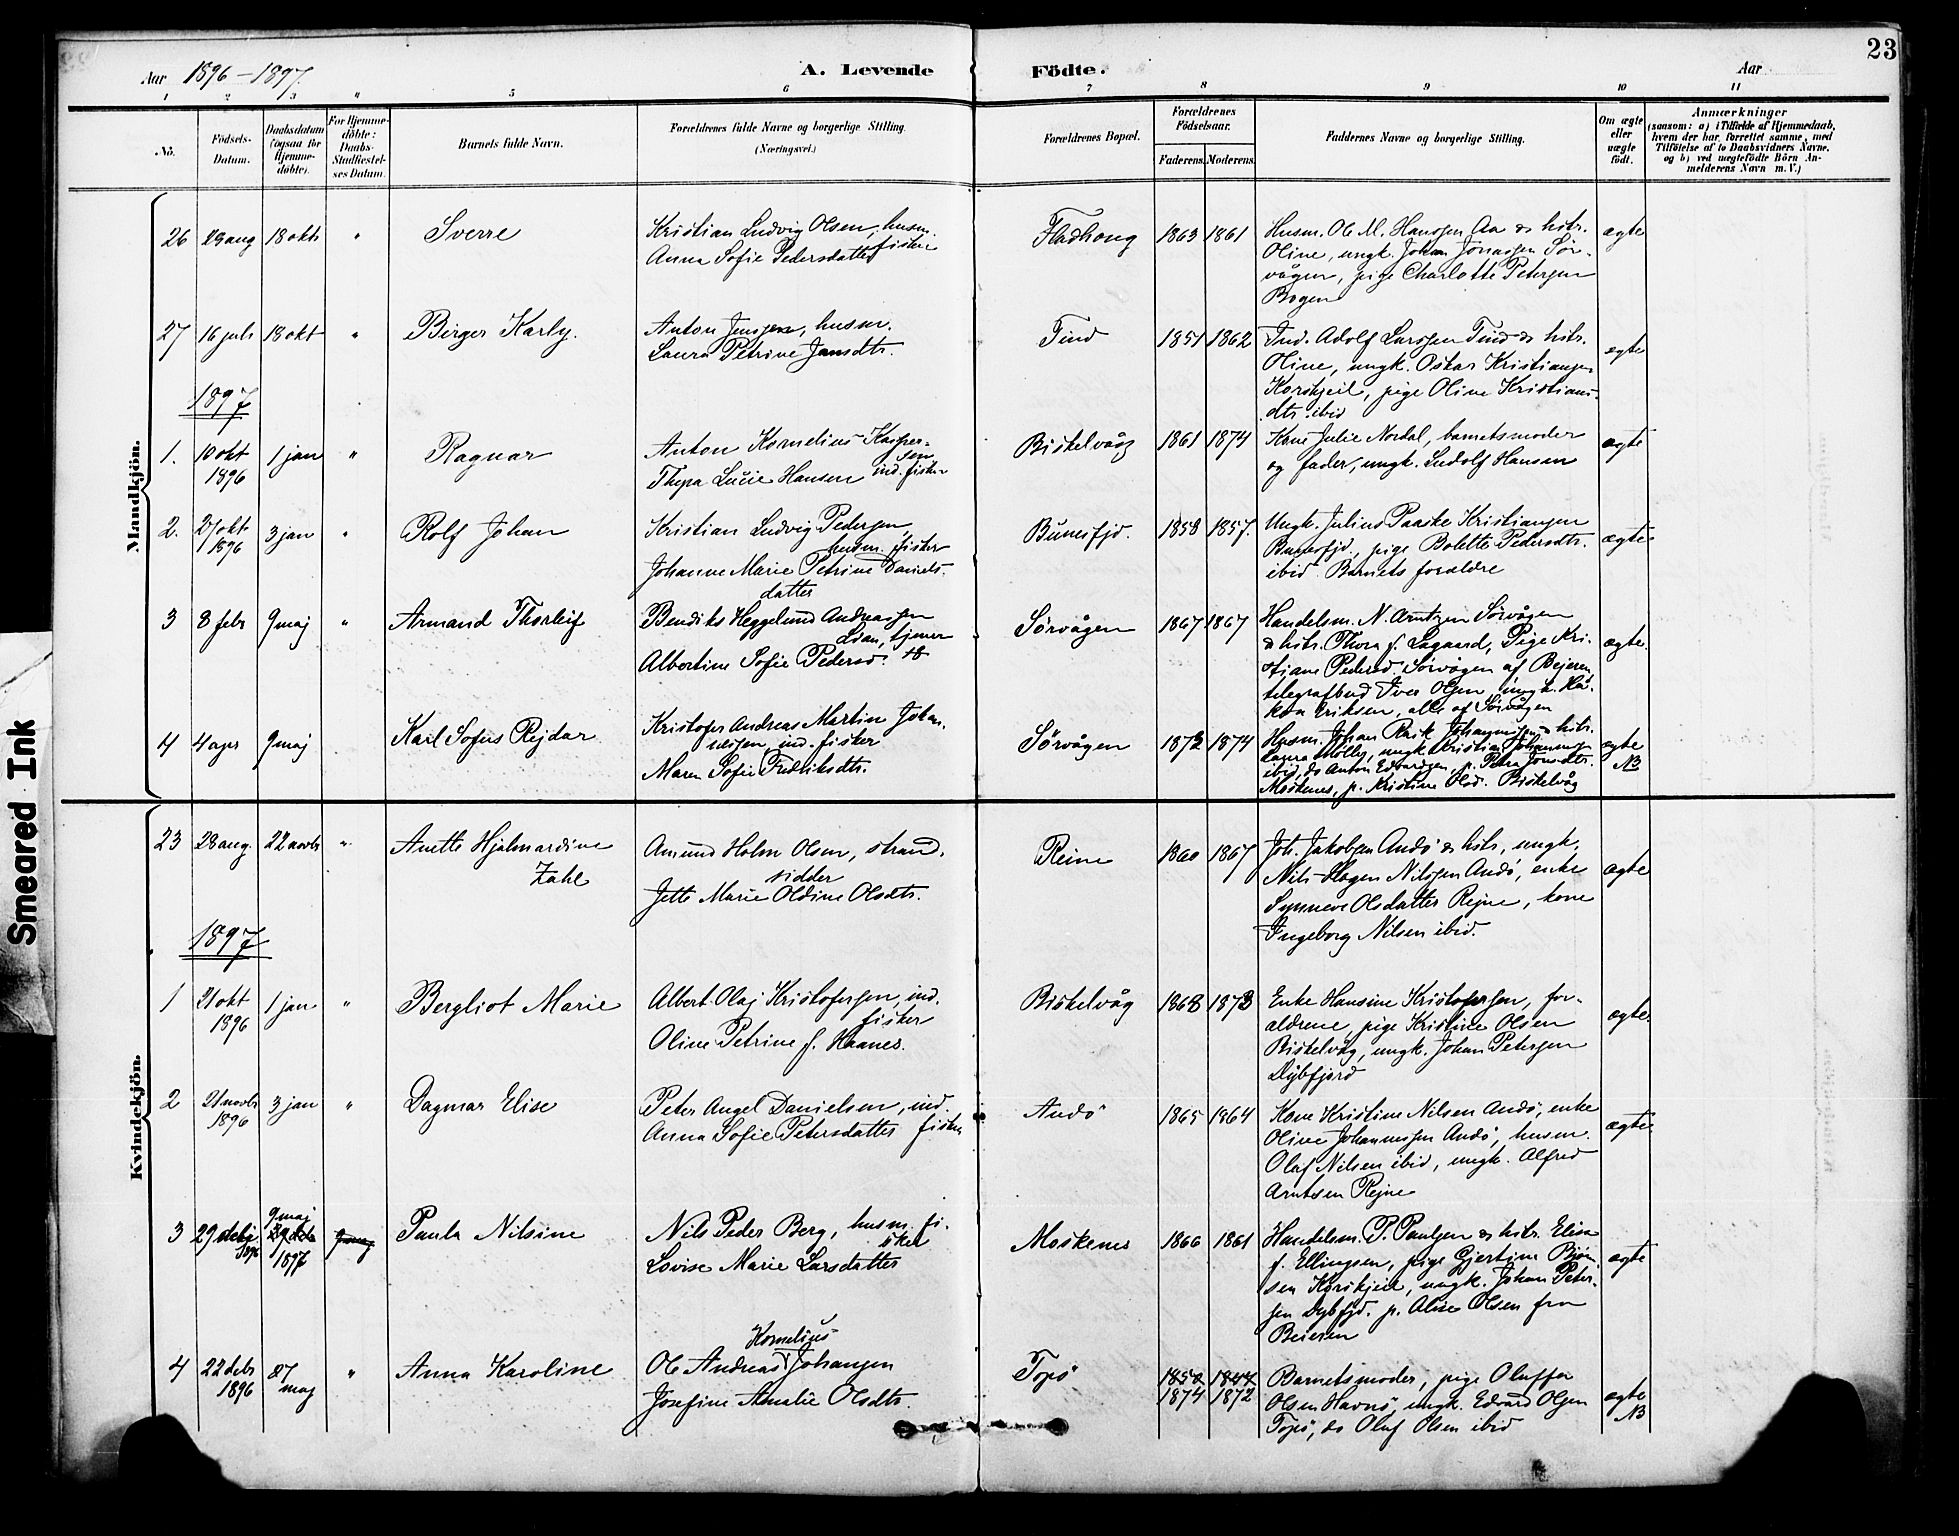 23
Aar 1896 – 1897. A. Levende Födte. Aar
1 2 3 " 5 6 7 8 9 10 11
No. Födsels-Datum. Daabsdatum (ogsaa for Hjemmedöbte). For Hjemmedöbte: Daabs-Stadfæstelses Datum. Barnets fulde Navn. Forældrenes fulde Navne og borgerlige Stilling. (Næringsvei.) Forældrenes Bopæl. Forældrenes Födselsaar. Faderens. Moderens. Faddernes Navne og borgerlige Stilling. Om ægte eller uægte födt. Anmærkninger (saasom: a) i Tilfælde af Hjemmedaab, hvem der har forrettet samme, med Tilföielse af to Daabsvidners Navne, og b) ved uægtefödte Börn Anmelderens Navn m. V.)
Mandkjön.
26 29 aug 18 okt " Sverre
Kristian Ludvig Olsen, husm. fisker
Anna Sofie Pedersdatter
Fladhong 1863 1861
Husm. Ol. M. Hanssen Aa & hstr.
Oline, ungk. Johan Jonassen Sør-
vågen, pige Charlotte Petersen
Bogen
ægte
27 16 juli 18 okt " Birger Karly.
Anton Jenssen, husm.
Laura Petrine Jansdtr.
Tind 1851 1862
Ind. Adolf Larssen Tind & hstr.
Oline, ungk. Oskar Kristiansen
Korshjeil, pige Oline Kristians-
dtr. ibid
ægte
1897
1. 10 okt 1896 1 jan " Ragnar
Anton Kornelius Kasper-
sen ind. fisker
Thyra Lucie Hansen
Biskelvåg 1861 1874
Kone Julie Nordal, barnets moder
og fader, ungk. Ludolf Hansen
ægte
2. 27 okt 1896 3 jan " Rolf Johan
Kristian Ludvig Pedersen,
husm. fisker
Johanne Marie Petrine Daniels-
datter
Bunesfjd. 1858 1857.
Ungk. Julius Paaske Kristiansen
Bunesfjd., pige Bolette Pedersdtr.
ibid. Barnets forældre
ægte
3 8 febr 9 maj " Armand Thorleif
Bendiks Heggelund Andreassen
tjener
Albertine Sofie Pedersd.
Sørvågen 1867 1867
Handelsm. N. Arntzen Sørvågen
& hstr. Thora f. Lagaard, Pige Kri-
stiane Pedersd. Sørvågen af Bejeren,
telegrafbud Iver Olsen, ungk. Hå-
kon Eriksen, alle af Sørvågen
ægte
4 4 apr 9 maj Karl Sofus Rejdar
Kristofer Andreas Martin Johan-
nessen, ind. fisker
Maren Sofie Fredriksdtr.
Sørvågen 1873 1874
Husm. Johan Rask Johannessen & hstr.
Laura Møller, ungk. Kristian Johannessen
ibid, do Anton Edvardsen, p. Petra Jonsdtr.
Moskenes, p. Kristine Olsd. Biskelvåg
ægte NB
Kvindekjön.
23 28 aug. 22 novbr " Anette Hjalmardine
Zahl
Amund Holm Olsen, strand-
sidder
Jette Marie Oldine Olsdtr.
Reine 1860 1867
Joh. Jakobsen Andö & hstr, ungk.
Nils Hagen Nilssen Andö, enke
Synneve Olsdatter Rejne, kone
Ingeborg Nilsen ibid.
ægte
1897
1 21 okt 1896 1 jan " Bergliot Marie
Albert Olaj Kristofersen, ind.
fisker
Oline Petrine f. Haanes.
Biskelvåg 1868 1873
Enke Hansine Kristofersen, for-
ældrene, pige Kristine Olsen
Biskelvåg, ungk. Johan Petersen
Dybfjord
ægte
2 21 novbr 1896 3 jan " Dagmar Elise
Peter Angel Danielsen, ind.
Anna Sofie Petersdatter fisker
Andö 1865 1864
Kone Kristine Nilsen Andö, enke
Oline Johannessen Andö, husm.
Oluf Nilsen ibid, ungk. Alfred
Arntsen Rejne
ægte
3 29 debr 1896 9 maj 1897 Paula Nilsine
Nils Peder Berg, husm. fi-
sker
Lovise Marie Larsdatter
Moskenes 1866 1861
Handelsm. P. Paulsen & hstr. Elise
f. Ellingsen, pige Gjertine Bjørn-
sen Korshjeil, ungk. Johan Peter-
sen Dybfjd. p. Alise Olsen fra
Beieren
ægte
4 22 debr 1896 27 maj " Anna Karoline
Kornelius
Ole Andreas Johansen
Josefine Amalie Olsdtr.
Topö 1874 1872
Barnets moder, pige Oluffa
Olsen Havnö, ungk. Edvard Olsen
Topö, do Oluf Olsen ibid
ægte NB
Smeared Ink